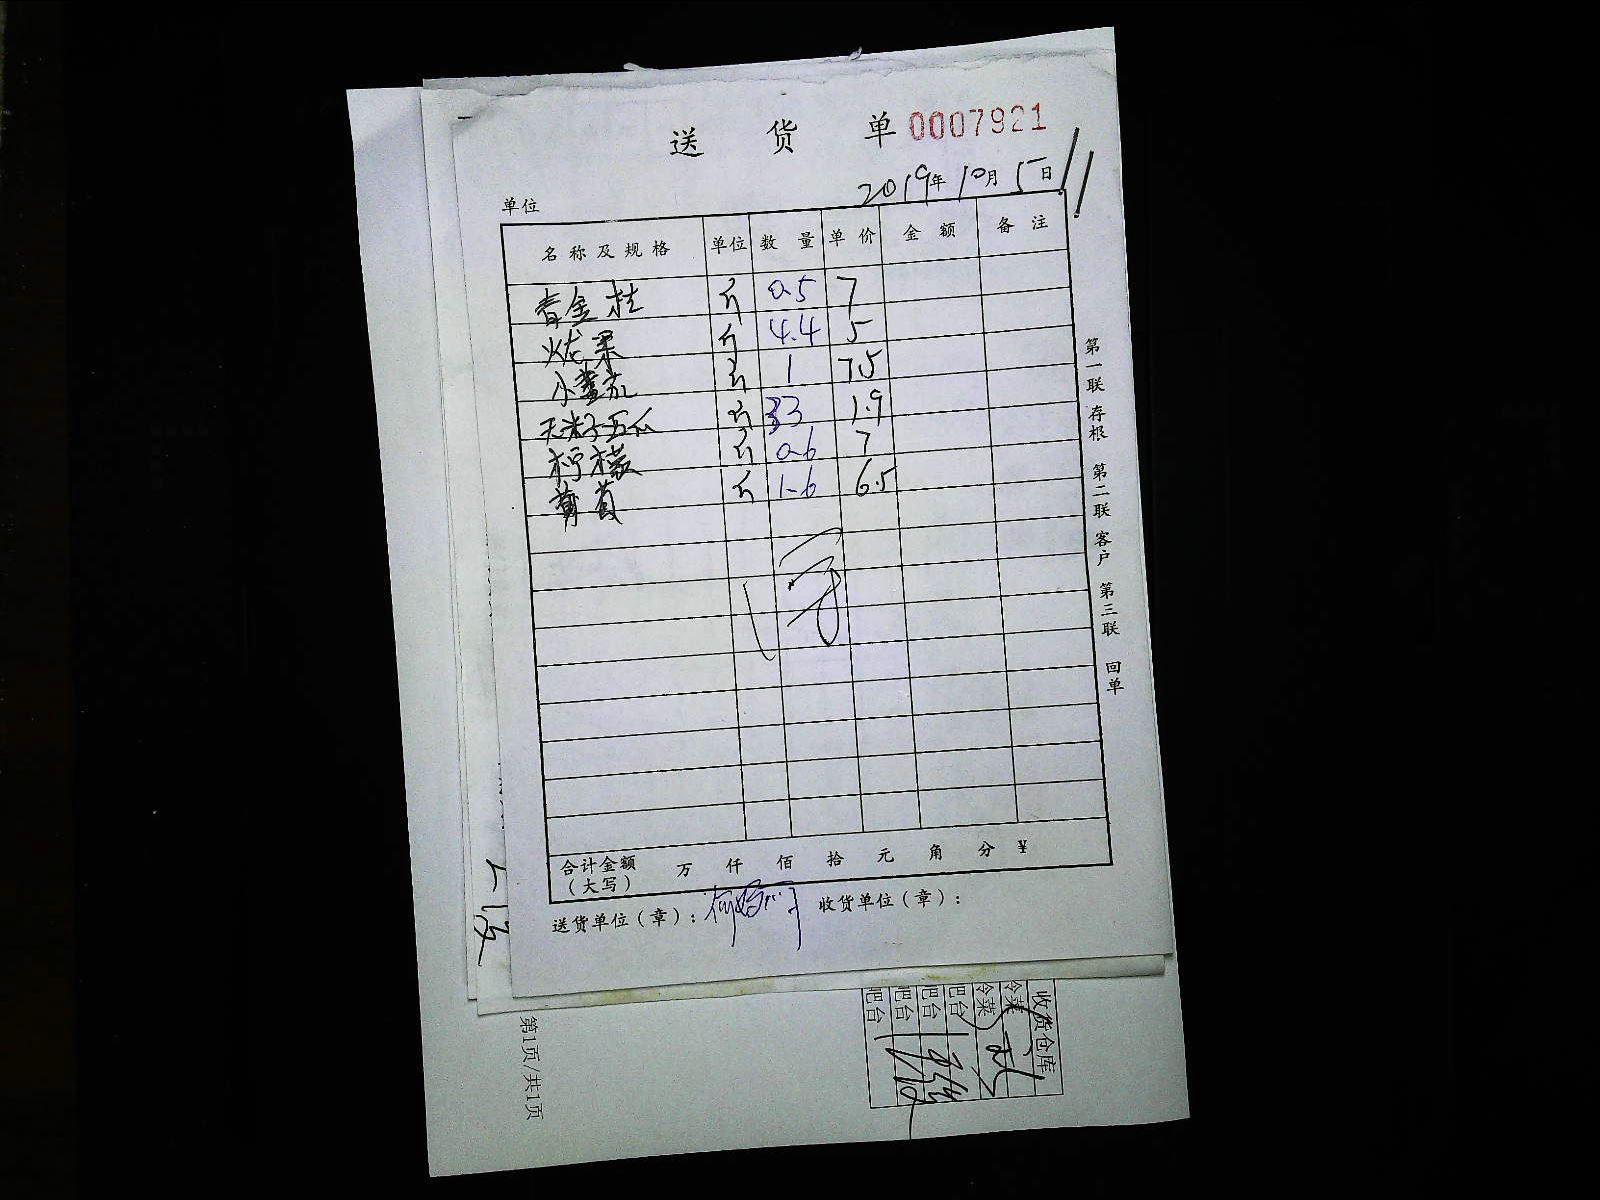 送 货 单 0007921
2019年 10月 5日
单位
名称及规格 单位 数量 单价 金额 备注
青金桔 斤 0.5 7
火龙果 斤 4.4 5
小番茄 斤 1 7.5
无籽西瓜 斤 33 1.9
柠檬 斤 0.6 7
葡萄 斤 1.6 6.5
合计金额 万 仟 佰 拾 元 角 分 ¥
(大写)
送货单位(章): 收货单位(章):
第一联 存根 第二联 客户 第三联 回单
收货仓库
冷菜
冷菜
吧台
吧台
吧台
吧台
第1页/共1页